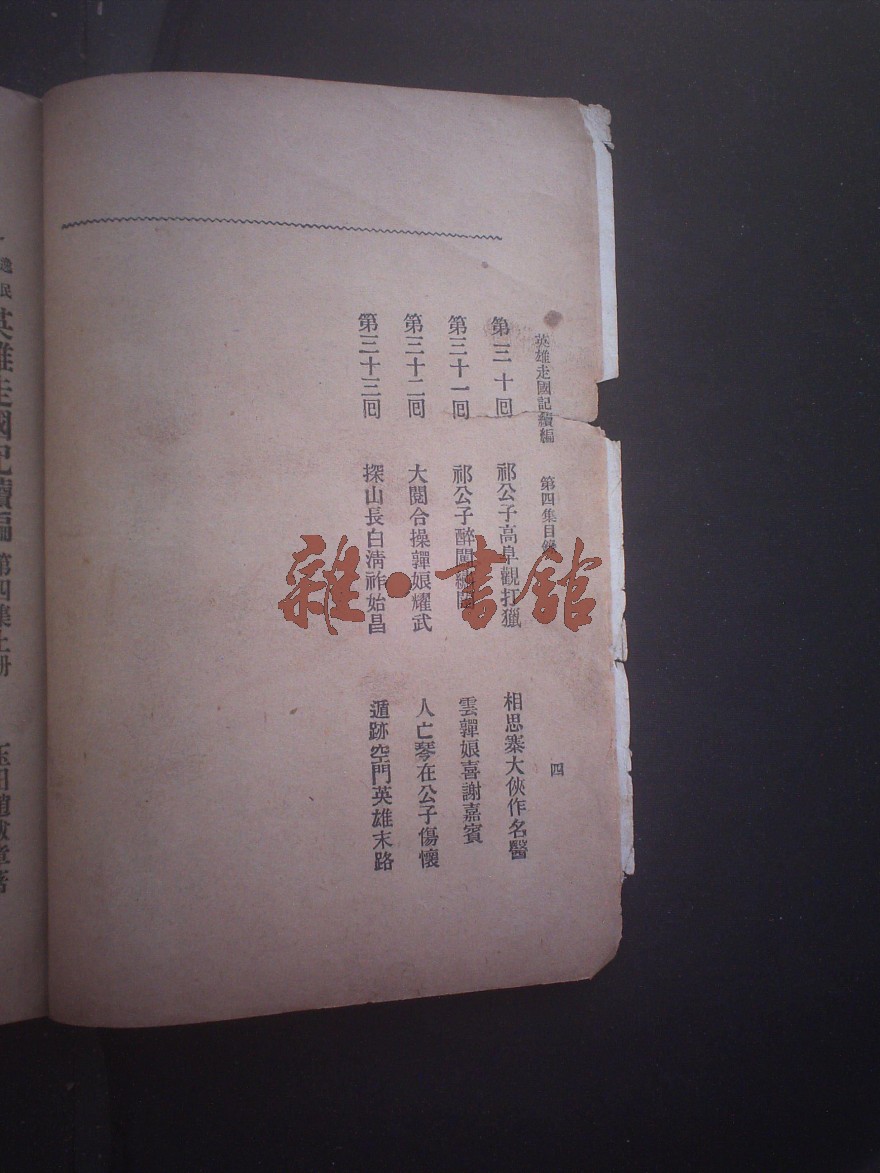 英雄走國記續編 第四集目錄 四
第三十回 祁公子高阜觀打獵 相思寨大俠作名醫
第三十一回 祁公子醉闖 雲嚲娘喜謝嘉賓
第三十二回 大閱合操嚲娘耀武 人亡琴在公子傷懷
第三十三回 探山長白清祚始昌 遁跡空門英雄末路
逸民 英雄走國記續編 第四集上册 玉田趙紱章著
雜·書館